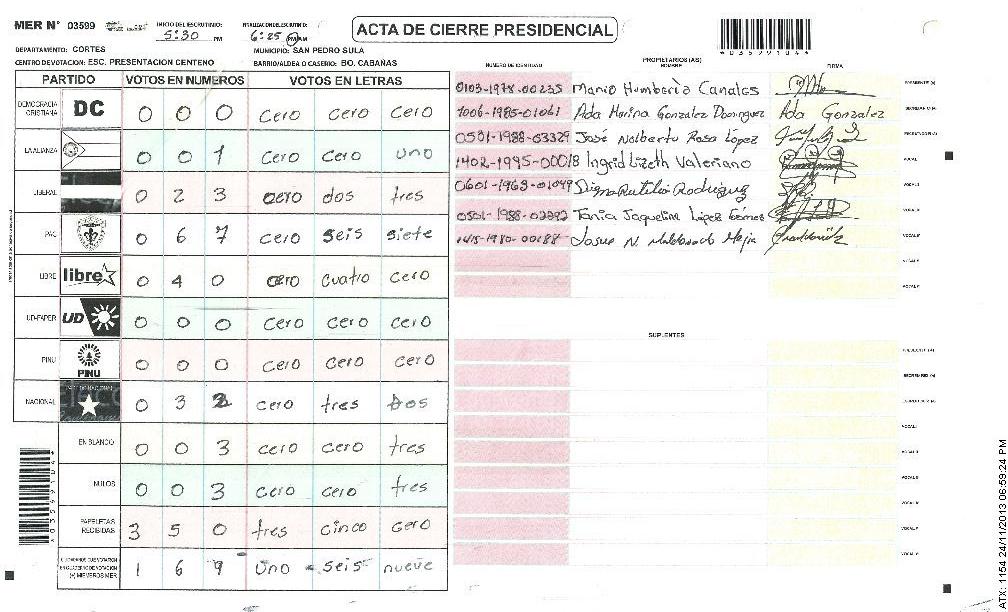 MER N° 03599 INICIO DEL ESCRUTINIO: 5:30 PM FINALIZACION ESCRUTINIO: 6:25 PM AM ACTA DE CIERRE PRESIDENCIAL
DEPARTAMENTO: CORTES MUNICIPIO: SAN PEDRO SULA
CENTRO DE VOTACION: ESC. PRESENTACION CENTENO BARRIO/ALDEA O CASERIO: BO. CABAÑAS
PARTIDO VOTOS EN NUMEROS VOTOS EN LETRAS
DEMOCRACIA CRISTIANA DC 0 0 0 cero cero cero
LA ALIANZA 0 0 1 cero cero uno
LIBERAL 0 2 3 cero dos tres
PAC 0 6 7 cero seis siete
LIBRE libre 0 4 0 cero cuatro cero
UD-FAPER UD 0 0 0 cero cero cero
PINU PINU 0 0 0 cero cero cero
NACIONAL 0 3 2 cero tres dos
EN BLANCO 0 0 3 cero cero tres
NULOS 0 0 3 cero cero tres
PAPELETAS RECIBIDAS 3 5 0 tres cinco cero
CIUDADANOS QUE VOTARON EN EL CUADERNO DE VOTACION (+) MIEMBROS MER 1 6 9 uno seis nueve
NUMERO DE IDENTIDAD PROPIETARIOS (AS) NOMBRE FIRMA
0103-1978-00235 Mario Humberto Canales PRESIDENTE (A)
1006-1985-01061 Ada Marina Gonzalez Dominguez Ada Gonzalez SECRETARIO (A)
0501-1988-03329 José Nolberto Rosa López ESCRUTADOR (A)
1402-1995-00018 Ingrid Lizeth Valeriano VOCAL I
0601-1963-01049 Digna Rutilia Rodriguez
0501-1988-02392 Tania Jaqueline López Gómes
1415-1980-00188 Josue N. Maldonado Mejia
SUPLENTES
PRESIDENTE (A)
SECRETARIO (A)
ESCRUTADOR (A)
VOCAL I
A0359910A4
ATX: 1154 24/11/2013 06:59:24 PM